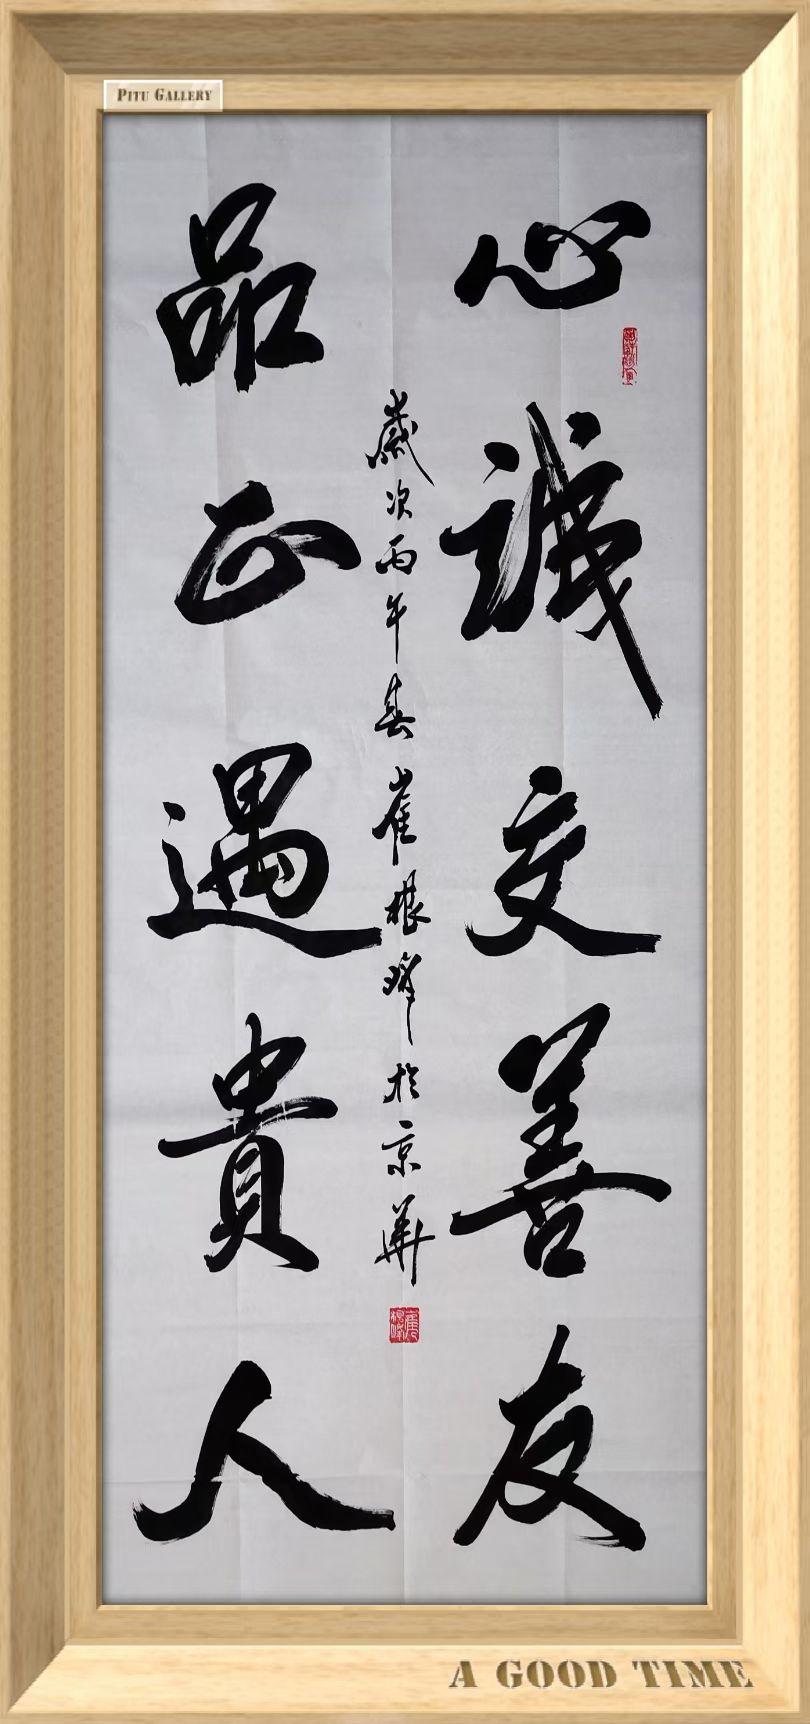 PITU GALLERY
心誠交善友
品正遇貴人
歲次丙午春崔根峰於京華
A GOOD TIME